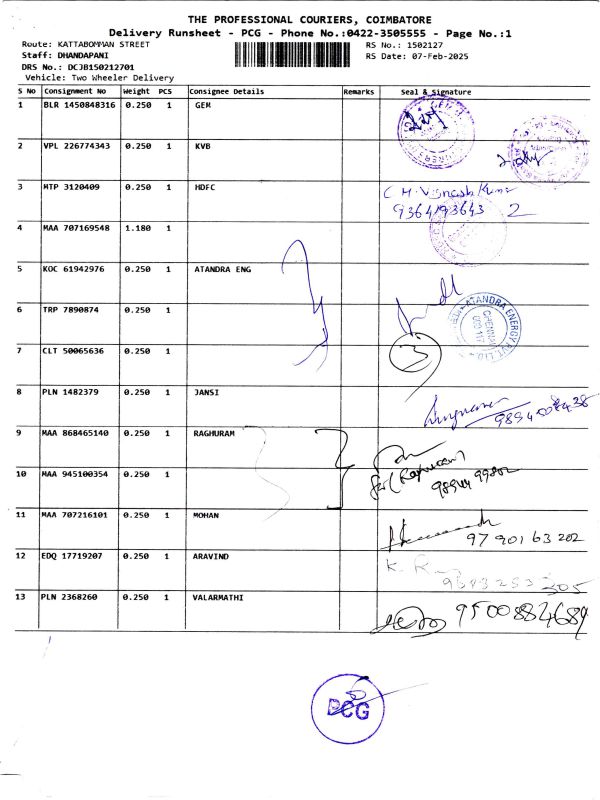 THE PROFESSIONAL COURIERS, COIMBATORE
Delivery Runsheet - PCG - Phone No.:0422-3505555 - Page No.:1
Route: KATTABOMMAN STREET
RS No.: 1502127
Staff: DHANDAPANI
RS Date: 07-Feb-2025
DRS No.: DCJB150212701
Vehicle: Two Wheeler Delivery
S No Consignment No Weight PCS Consignee Details Remarks Seal & Signature
1 BLR 1450848316 0.250 1 GEM
2 VPL 226774343 0.250 1 KVB
3 MTP 3120409 0.250 1 HDFC
9364193643 2
4 MAA 707169548 1.180 1
5 KOC 61942976 0.250 1 ATANDRA ENG
ATANDRA ENERGY PVT. LTD.
CHENNAI
6 TRP 7890874 0.250 1
7 CLT 50065636 0.250 1
3
8 PLN 1482379 0.250 1 JANSI
9 MAA 868465140 0.250 1 RAGHURAM
(Raghuram)
10 MAA 945100354 0.250 1
11 MAA 707216101 0.250 1 MOHAN
9790163202
12 EDQ 17719207 0.250 1 ARAVIND
13 PLN 2368260 0.250 1 VALARMATHI
9500884689
PCG